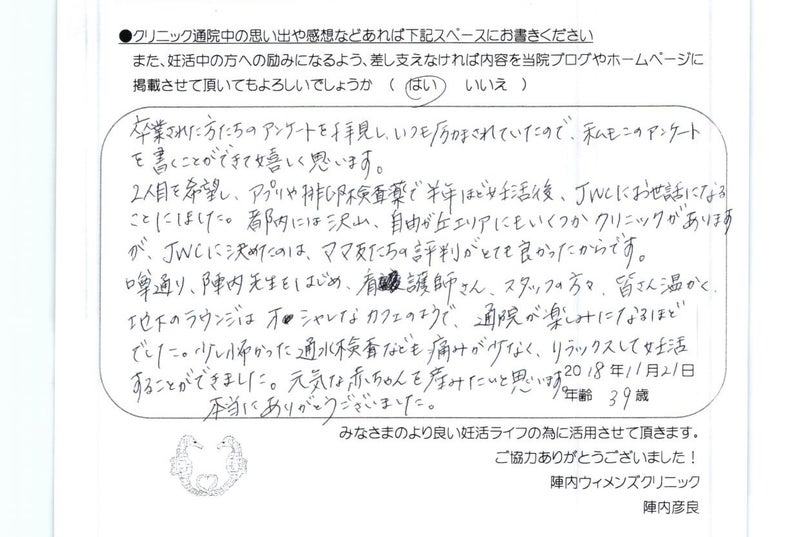 ●クリニック通院中の思い出や感想などあれば下記スペースにお書きください
また、妊活中の方への励みになるよう、差し支えなければ内容を当院ブログやホームページに
掲載させて頂いてもよろしいでしょうか （ はい いいえ ）
卒業された方たちのアンケートを拝見し、いつも励まされていたので、私もこのアンケート
を書くことができて嬉しく思います。
2人目を希望し、アプリや排卵検査薬で半年ほど妊活後、JWCにお世話になる
ことにしました。都内には沢山、自由が丘エリアにもいくつかクリニックがあります
が、JWCに決めたのは、ママ友たちの評判がとても良かったからです。
噂通り、陣内先生をはじめ、看護師さん、スタッフの方々、皆さん温かく、
地下のラウンジはオシャレなカフェのようで、通院が楽しみになるほど
でした。少し怖かった通水検査なども痛みが少なく、リラックスして妊活
することができました。元気な赤ちゃんを産みたいと思います。
本当にありがとうございました。
2018年11月21日
年齢 39歳
みなさまのより良い妊活ライフの為に活用させて頂きます。
ご協力ありがとうございました！
陣内ウィメンズクリニック
陣内彦良